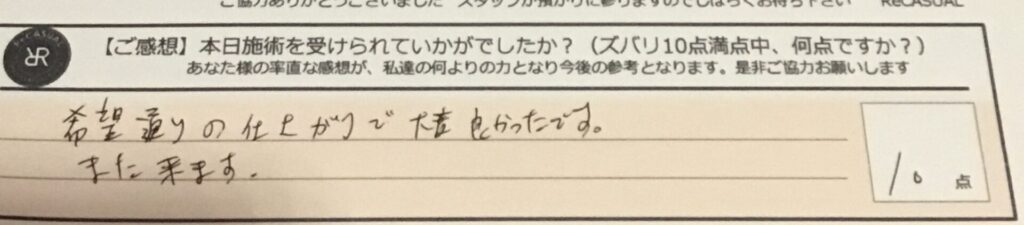 ご協力ありがとうございました スタッフが預かりに参りますのでしばらくお待ち下さい ReCASUAL
【ご感想】本日施術を受けられていかがでしたか？（ズバリ10点満点中、何点ですか？）
あなた様の率直な感想が、私達の何よりの力となり今後の参考となります。是非ご協力お願いします
希望通りの仕上がりで大変良かったです。
また来ます。
10点